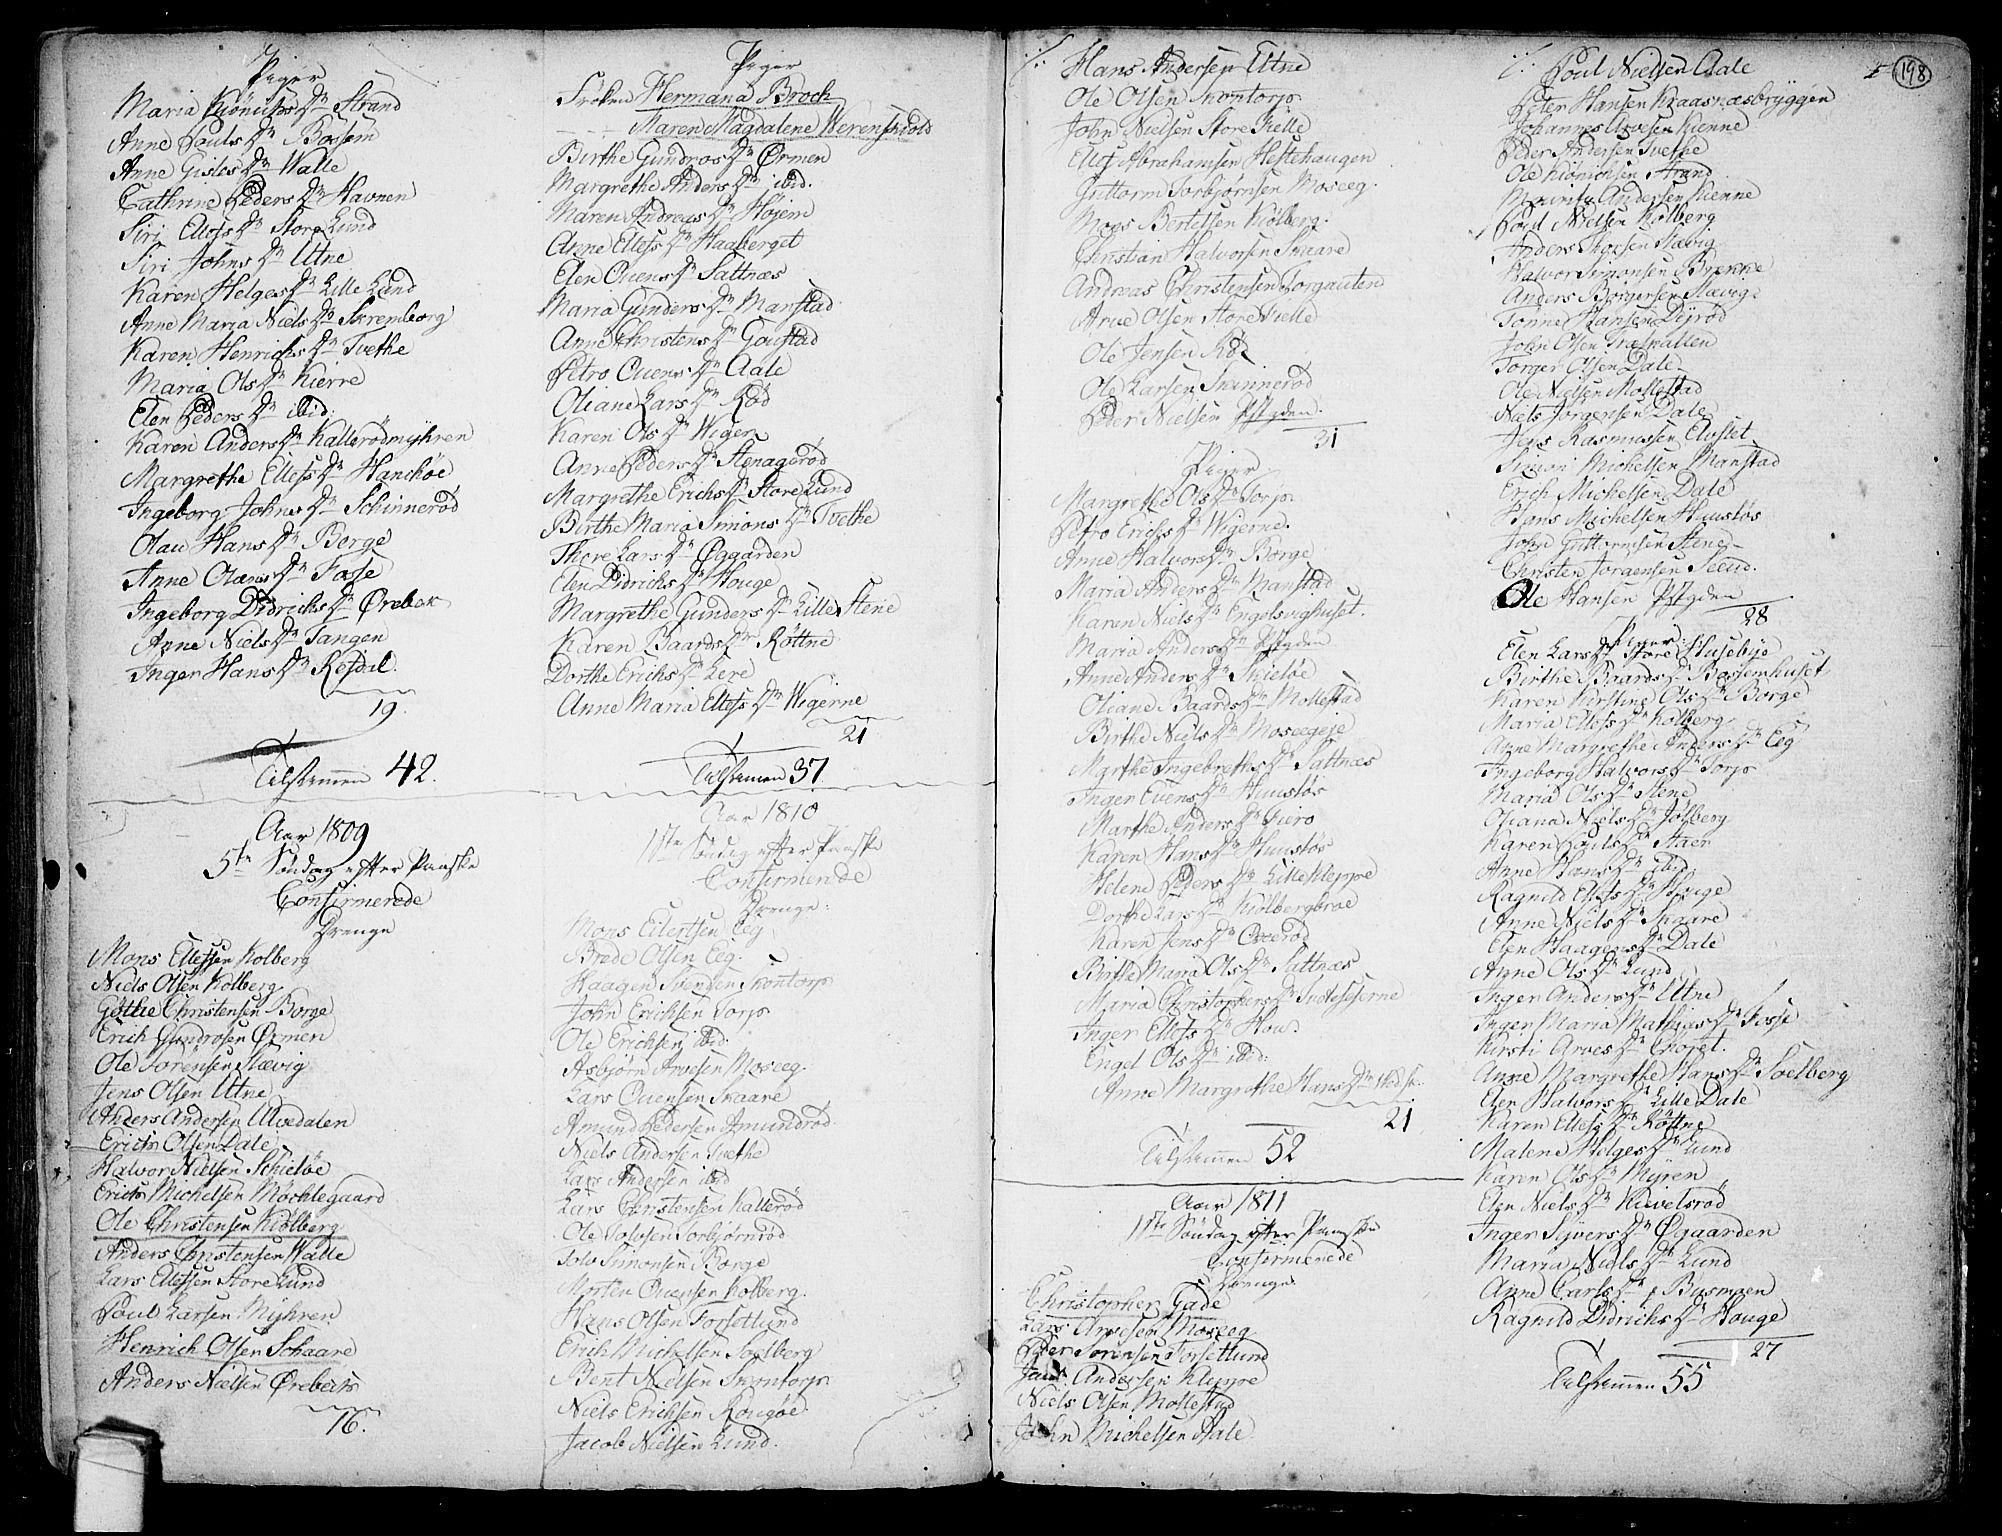 Piger
Maria Kiönichs Dr Strand
Anne Pouls Dr Bossem
Anne Gisles Dr Walle
Cathrine Peders Dr Havnen
Siri Ellefs Dr Store Lund
Siri Johns Dr Utne
Karen Helges Dr Lille Lund
Anne Maria Niels Dr Skremborg
Karen Henrichs Dr Tvethe
Maria Ols Dr Kierre
Elen Peders Dr ibid:
Karen Anders Dr Kallerödmyhren
Margrethe Ellefs Dr Hanchöe
Ingeborg Johns Dr Schinneröd
Olau Hans Dr Borge
Anne Olæus Dr Fosse
Ingeborg Didrichs Dr Ørebek
Anne Niels Dr Tangen
Inger Hans Dr Refdal.
19.
Tilsammen 42.
Aar 1809
5te Söndag efter Paaske
Confirmerede
Drenge
Mons Ellefsen Kolberg
Niels Olsen Kolberg
Gothe Christensen Borge
Erich Gundrosen Ørmen
Ole Sörensen Slævig
Jens Olsen Utne
Anders Andersen Ulvedalen
Erich Olsen Dale
Halvor Nielsen Schielöe
Erich Michelsen Möchlegaard
Ole Christensen Kiölberg
Anders Christensen Walle
Lars Ellefsen Store Lund
Poul Larsen Myhren
Henrich Olsen Schaare
Anders Nielsen Ørebech
16.
Piger
Fröken Hermana Brock
- - - Maren Magdalene Werenskiold
Birthe Gundros Dr Ørmen
Margrethe Anders Dr ibid.
Maren Andreas Dr Höjem
Anne Ellefs Dr Haaberget
Elen Ouens Dr Sattnæs
Maria Gunders Dr Manstad
Anne Christens Dr Goustad
Petro Ouens Dr Aale
Oliane Lars Dr Röd
Karen Ols Dr Wiger
Anne Peders Dr Stenageröd
Margrethe Erichs Dr Store Lund
Birthe Maria Simons Dr Tvethe
Thore Lars Dr Øggarden
Elen Didrichs Dr Houge
Margrethe Gunders Dr Lille Stene
Karen Baards Dr Röttne
Dorthe Erichs Dr Lere
Anne Maria Ellefs Dr Wigerne
21
Tilsammen 37.
Aar 1810
1ste Söndag efter Paaske
Confirmerede
Drenge:
Mons Eilertsen Eeg
Brede Olsen Eeg.
Haagen Svendsen Skontorp
John Erichsen Torp
Ole Erichsen ibid.
Asbjörn Arvesen Moseeg.
Lars Ouensen Skaare
Amund Pedersen Amundröd
Niels Andersen Tvethe
Lars Andersen ibid
Lars Christensen Kalleröd
Ole Tolvsen Torbjörnröd
Tolv Simonsen Borge
Morten Ouensen Kolberg.
Hans Olsen Torsetlund
Erich Michelsen Soelberg
Bent Nielsen Skontorp
Niels Erichsen Rougöe.
Jacob Nielsen Lund.
Hans Andersen Utne
Ole Olsen Skontorp
John Nielsen Store Kelle
Ellef Abrahamsen Hestehaugen
Guttorm Torbjörnsen Moseeg.
Mons Bertelsen Kiölberg.
Christian Halvorsen Skaare
Andreas Christensen Torgauten
Arve Olsen Store Kelle
Ole Jensen Röd
Ole Larsen Skinneröd
Peder Nielsen Pstgden.
31
Piger
Margrethe Ols Dr Torp
Petro Erichs Dr Wigerne.
Anne Halvors Dr Borge
Maria Anders Dr Manstad
Karen Niels Dr Engelsvighuset.
Maria Anders Dr Pstgden
Anne Anders Dr Skielöe
Oliane Baards Dr Mollestad
Birthe Niels Dr Moseegeje
Marthe Ingebreths Dr Sattnæs
Inger Evens Dr Huuslös
Marthe Anders Dr
Karen Hans Dr Huuslös
Helene Peders Dr Lille Kleppe
Dorthe Lars Dr Kiölbergbroe
Karen Jens Dr Oxeröd
Birthe Maria Ols Dr Sattnæs
Maria Christophers Dr
Inger Ellefs Dr How.
Engel Ols Dr ibid:
Anne Margrethe Hans Dr
21
Tilsammen 52
Aar 1811
1ste Söndag efter Paaske
Confirmerede
Drenge
Christopher Gade
Lars Arvesen Moseeg
Peder Sörensen Torsetlund
Andersen Kleppe
Niels Olsen Mollestad
John Michelsen Aale
Poul Nielsen Aale
198
Peter Hansen Kraasnæsbryggen
Johannes Arvesen Kienne
Peder Andersen Tvethe
Ole Kiönichsen Strand
Mouritz Andersen Kienne
Poul Nielsen Kolberg
Anders Slævig
Halvor Simonsen Brønne
Anders Börgersen Slævig
Tönne Hansen Dyröd
John Olsen Træpallen
Torger Olsen Dale
Ole Nielsen Mollestad
Niels Jörgensen Dale
Jens Rasmussen Elvflet
Simon Michelsen Manstad
Erich Michelsen Dale
Hans Michelsen Huuslös
John Guttormsen Stene
Christen Jörgensen
Ole Hansen Pstgden
28
Piger
Elen Lars Dr Store Huseby
Birthe Baards Dr Bossemhuset
Karen Kirstine Ols Dr Borge
Maria Ellefs Dr Kolberg
Anne Margrethe Anders Dr Eeg
Ingeborg Halvors Dr Torp
Maria Ols Dr Stene
Oliana Niels Dr Jölberg
Karen Pouls Dr Staer
Anne Hans Dr ibid.
Ragnild Ellefs Dr Houge
Anne Niels Dr Skaare
Elen Haagens Dr Dale
Anne Ols Dr Lund
Inger Anders Dr Utne
Inger Maria Mathias Dr Fosse
Kirsti Arves Dr Choret.
Anne Margrethe Hans Dr Soelberg
Elen Halvors Dr Lille Dale
Karen Ellefs Dr Röttne
Malene Helges Dr Lund
Karen Ols Dr Myren
Elen Niels Dr Kievelsröd
Inger Syvers Dr Øgaarden
Maria Niels Dr Lund
Anne Carls Dr Busmoen
Ragnild Didrichs Dr Houge
27
Tilsammen 55